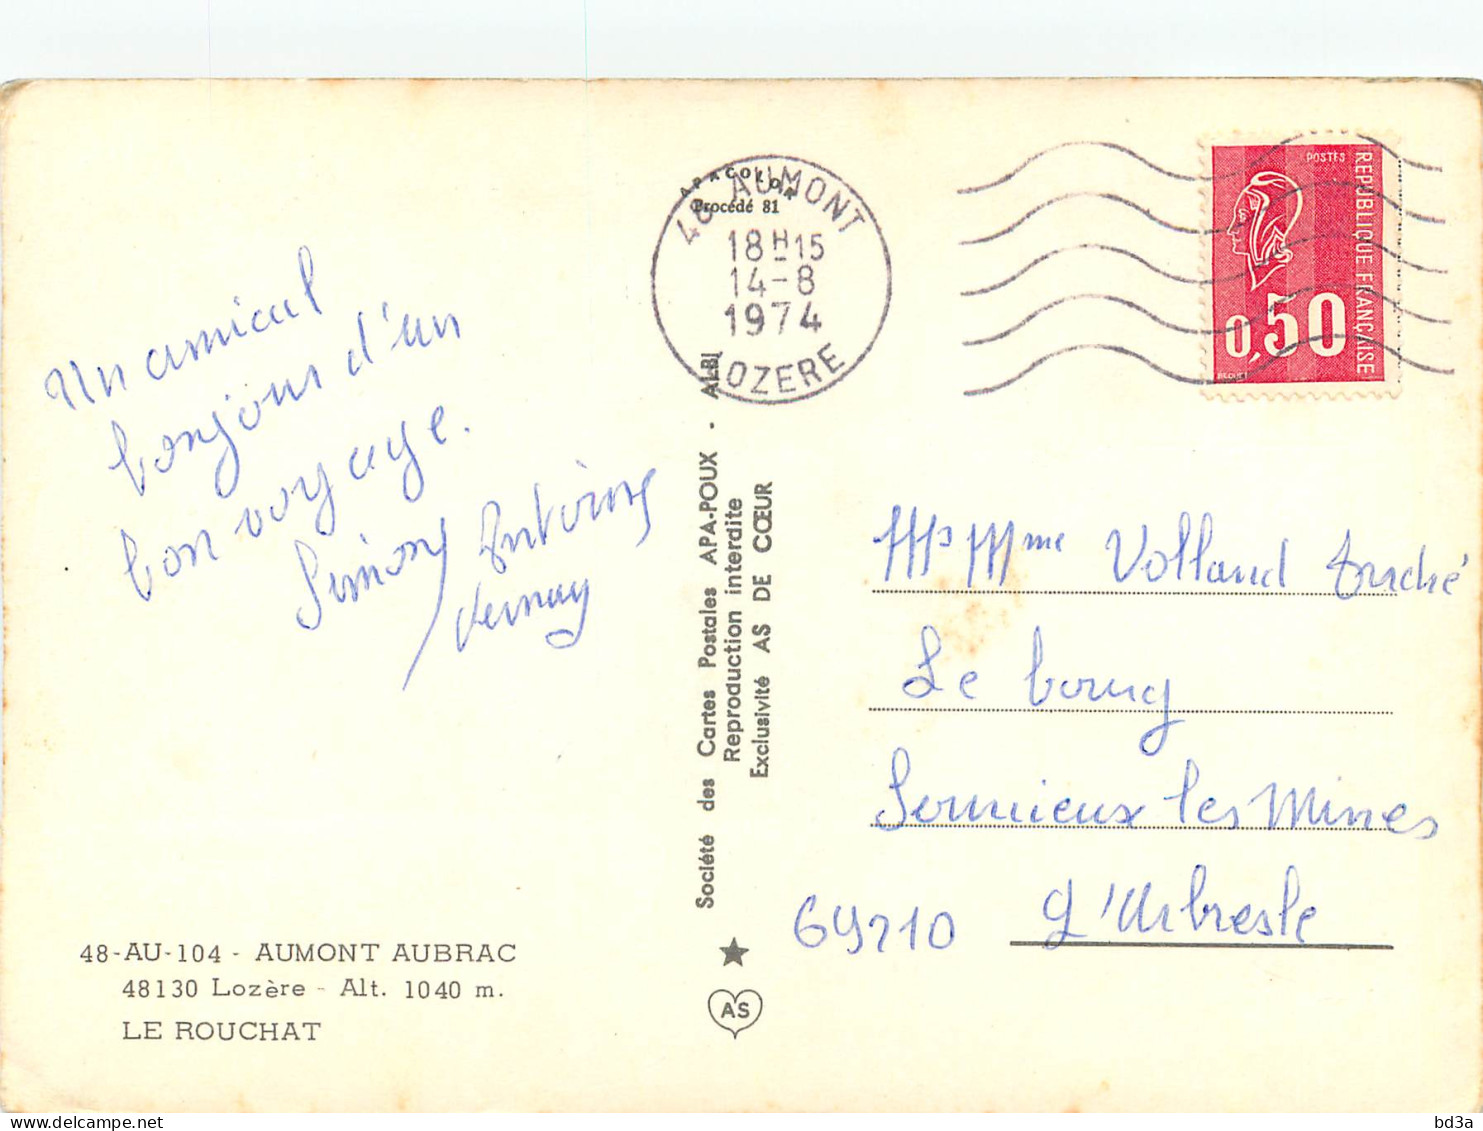 Un amical
bonjour d'un
bon voyage.
Simony Antoine
Vernay
48-AU-104 - AUMONT AUBRAC
48130 Lozère - Alt. 1040 m.
LE ROUCHAT
Société des Cartes Postales APA-POUX - ALBI
Reproduction interdite
Exclusivité AS DE CŒUR
AS
APACOLOR
Procédé 81
48 AUMONT
18H15
14-8
1974
LOZERE
POSTES
REPUBLIQUE FRANÇAISE
0,50
BEQUET
Mr Mme Volland André
Le bourg
Sourcieux les Mines
69210 L'Arbresle
bd3a